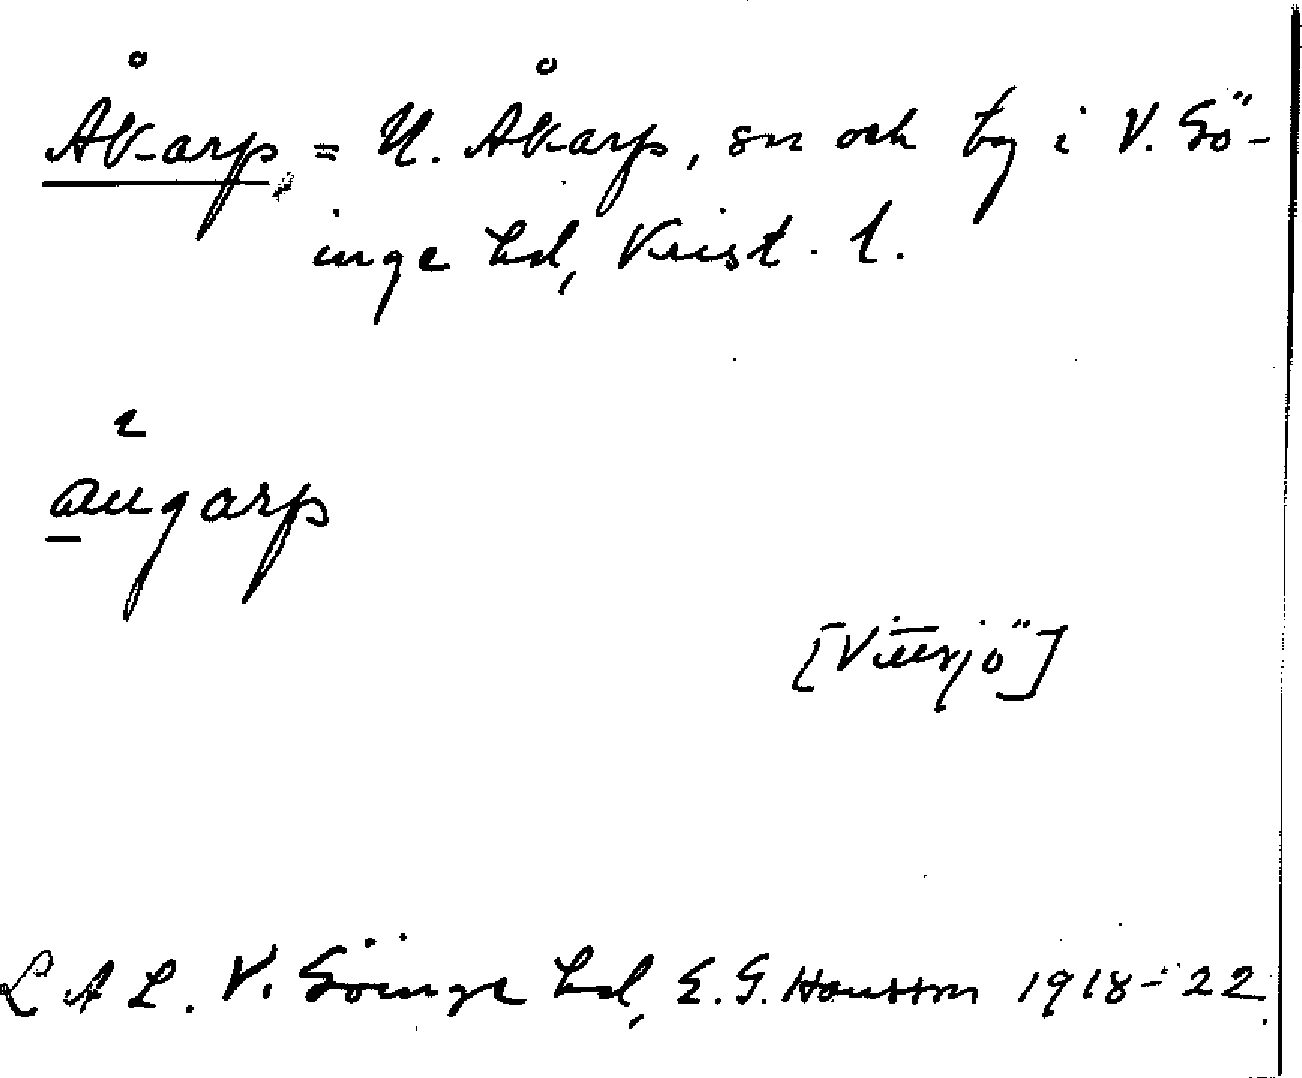 Åkarp = N. Åkarp, sn och by i V. Gö-
inge hd, Krist. l.
[Vittsjö]
LAL. V. Göinge hd, E. G. Hansson 1918-22.